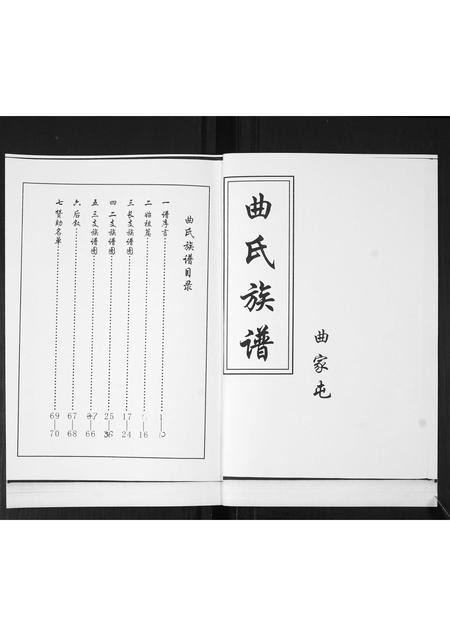 曲氏族谱
曲家屯
曲氏族谱目录
一 谱序言
二 始祖篇 16
三 长支族谱图 17—24
四 二支族谱图 25—36
五 三支族谱图 37—66
六 后叙 67—68
七 赞助名单 69—70